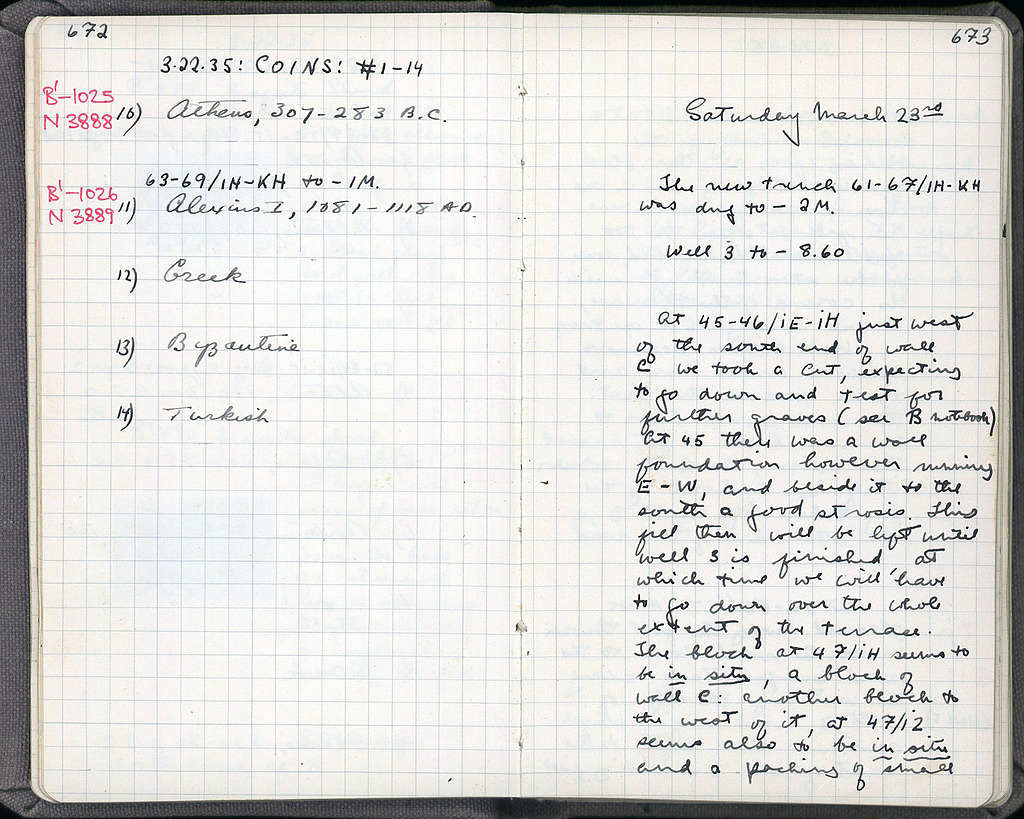 672
3·22·35: COINS: #1-14
B'-1025
N 3888
10) Athens, 307-283 B.C.
63-69/IH-KH to -1M.
B'-1026
N 3889
11) Alexius I, 1081-1118 AD.
12) Greek
13) Byzantine
14) Turkish
673
Saturday March 23rd
The new trench 61-67/IH-KH
was dug to - 2M.
Well 3 to - 8.60
At 45-46/iE-iH just west
of the south end of wall
C we took a cut, expecting
to go down and test for
further graves (see B notebook)
At 45 there was a wall
foundation however running
E-W, and beside it to the
south a good strosis. This
fill then will be left until
well 3 is finished, at
which time we will have
to go down over the whole
extent of the terrace.
The block at 47/iH seems to
be in situ, a block of
wall C: another block to
the west of it, at 47/iZ
seems also to be in situ
and a packing of small